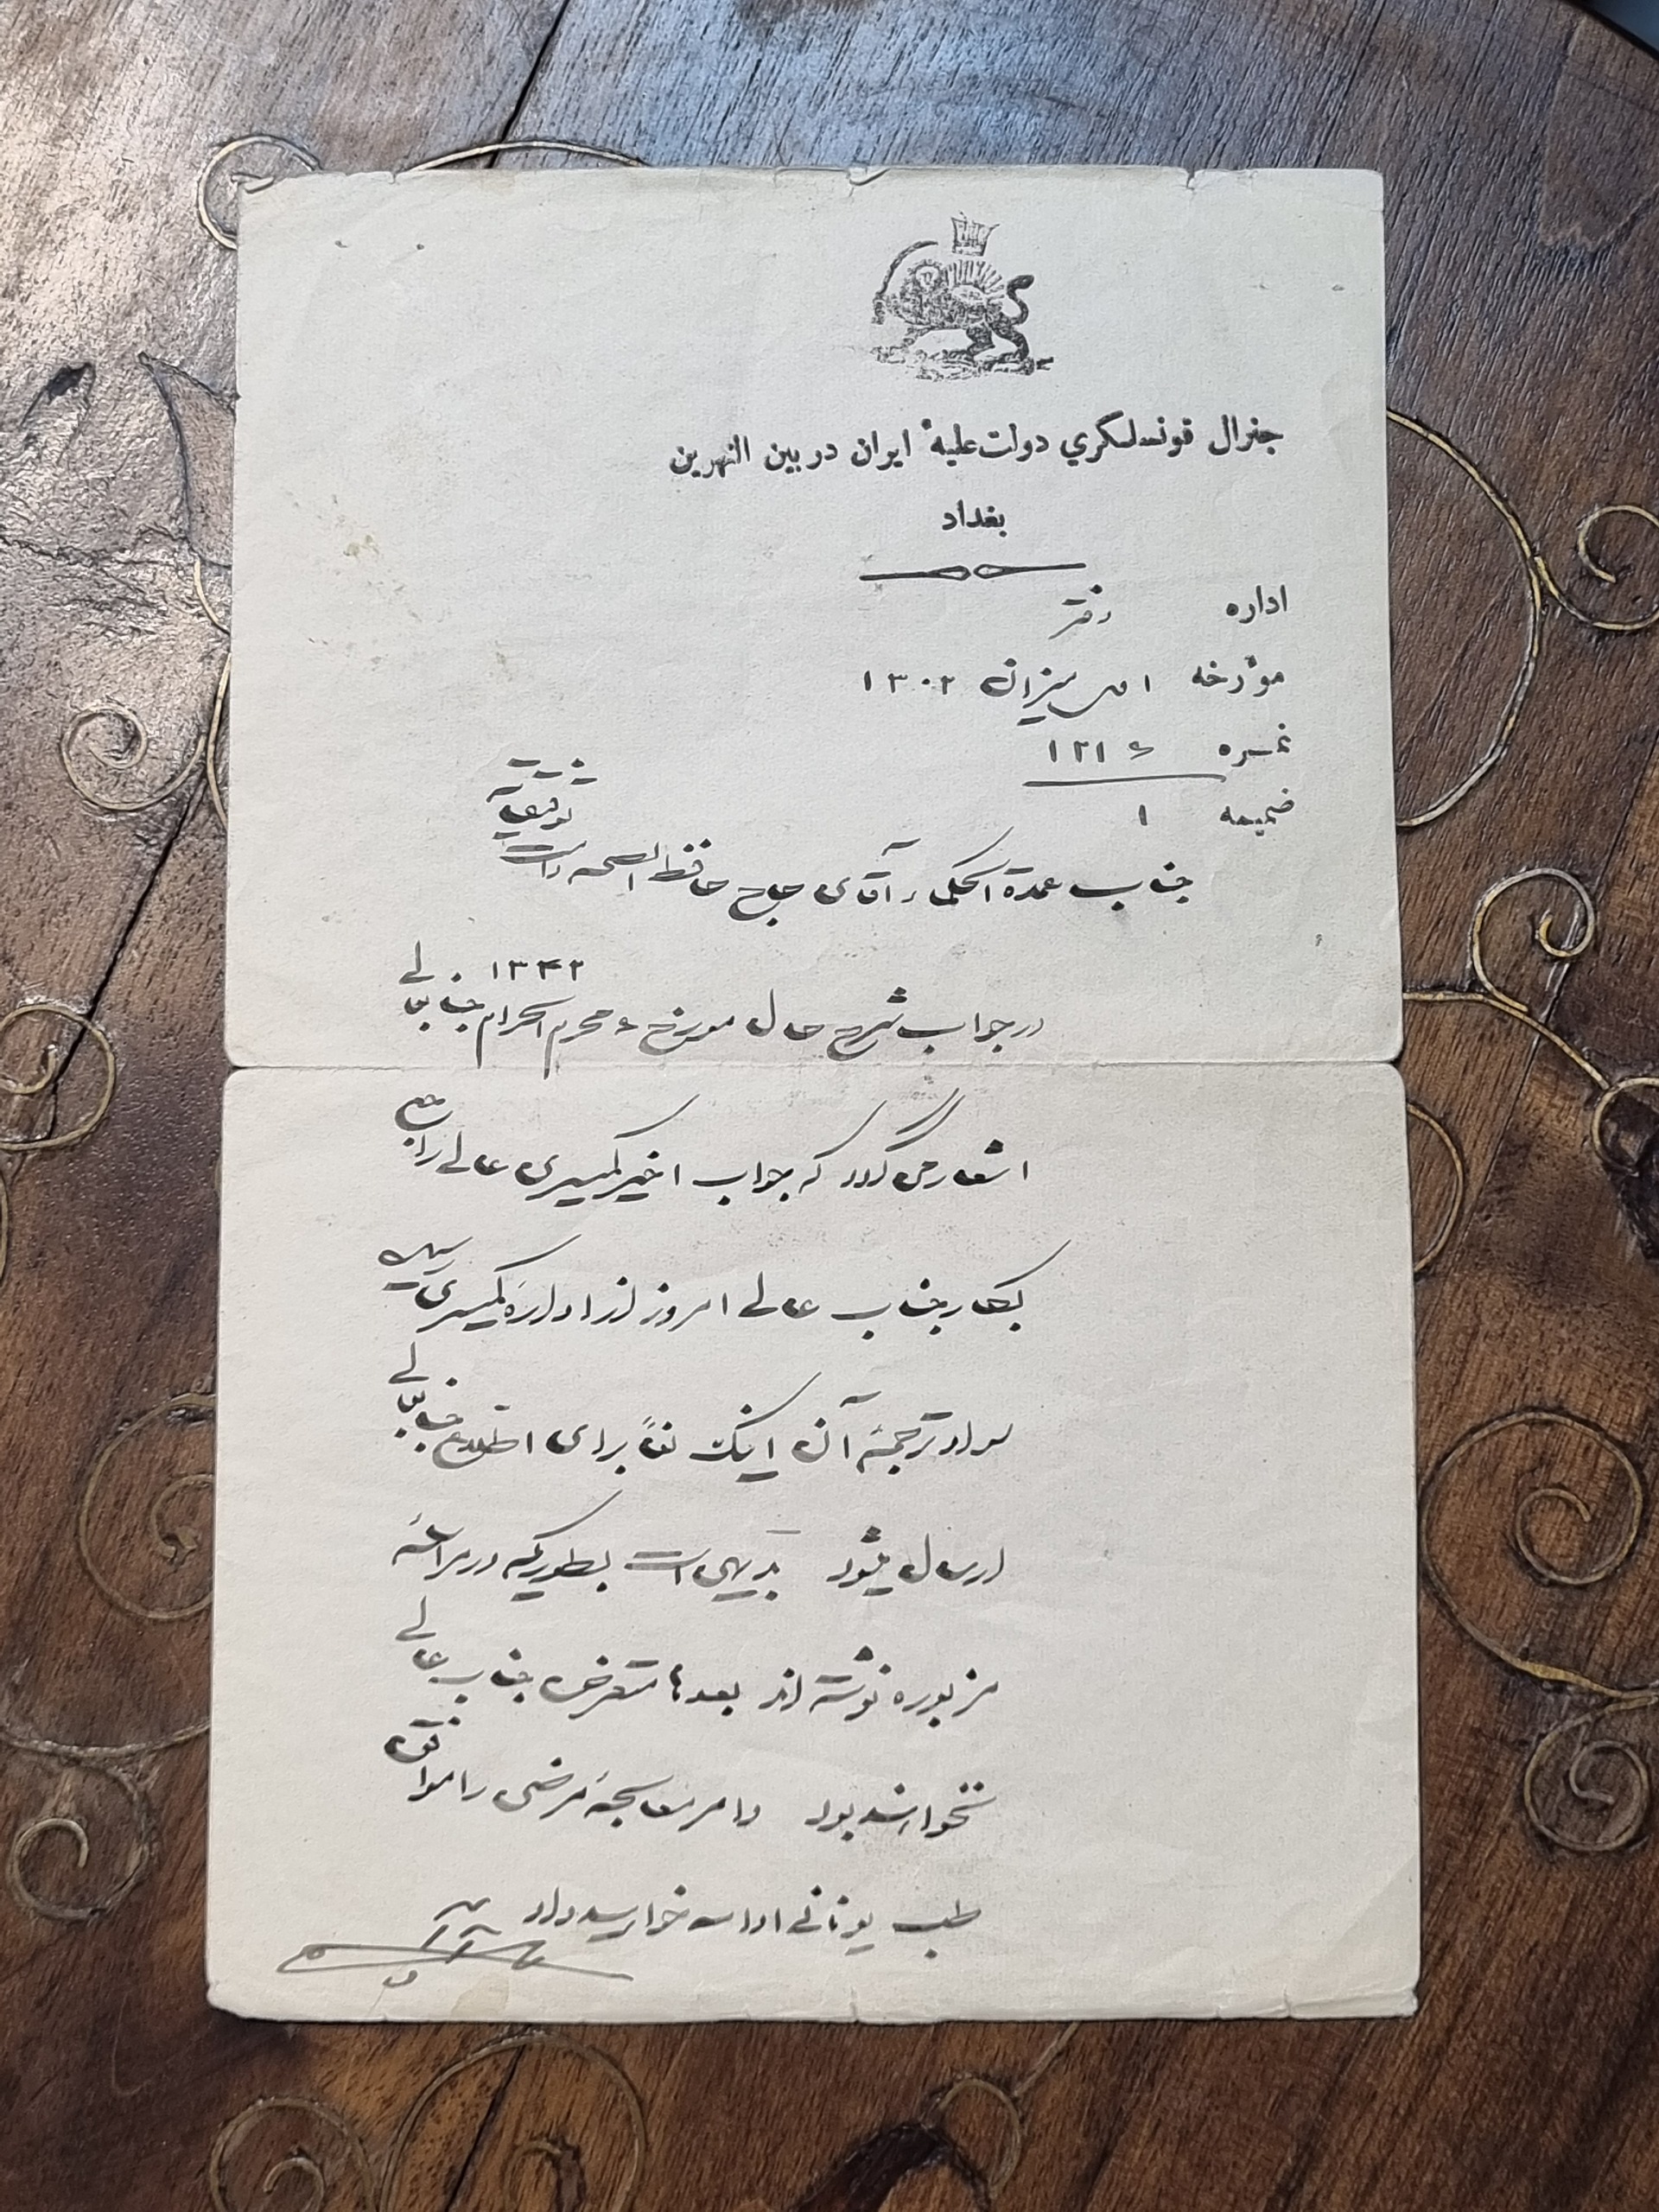 جنرال قونسلگري دولت عليهٔ ايران در بين النهرين
بغداد
اداره دفتر
مؤرخه ميزان ١٣٠٢
نمره ١٢١٤
ضميمه ١
جناب عمدة الحکماء آقای حاج حافظ الصحه دامت توفيقاته
در جواب شرح حال مورخ ٤ محرم الحرام ١٣٤٢ جنابعالی
اشعار می گردد که جواب اخير کميسری عالی راجع
بکار جناب عالی امروز از اداره کميسری رسيده
سواد ترجمهٔ آن اينک لفاً برای اطلاع جنابعالی
ارسال ميشود بديهی است بطوريکه در مراسلهٔ
مزبوره نوشته اند بعدها متعرض جناب عالی
نخواهند بود و امر معالجهٔ مرضی را موافق
طب يونانی ادامه خواهيد داد